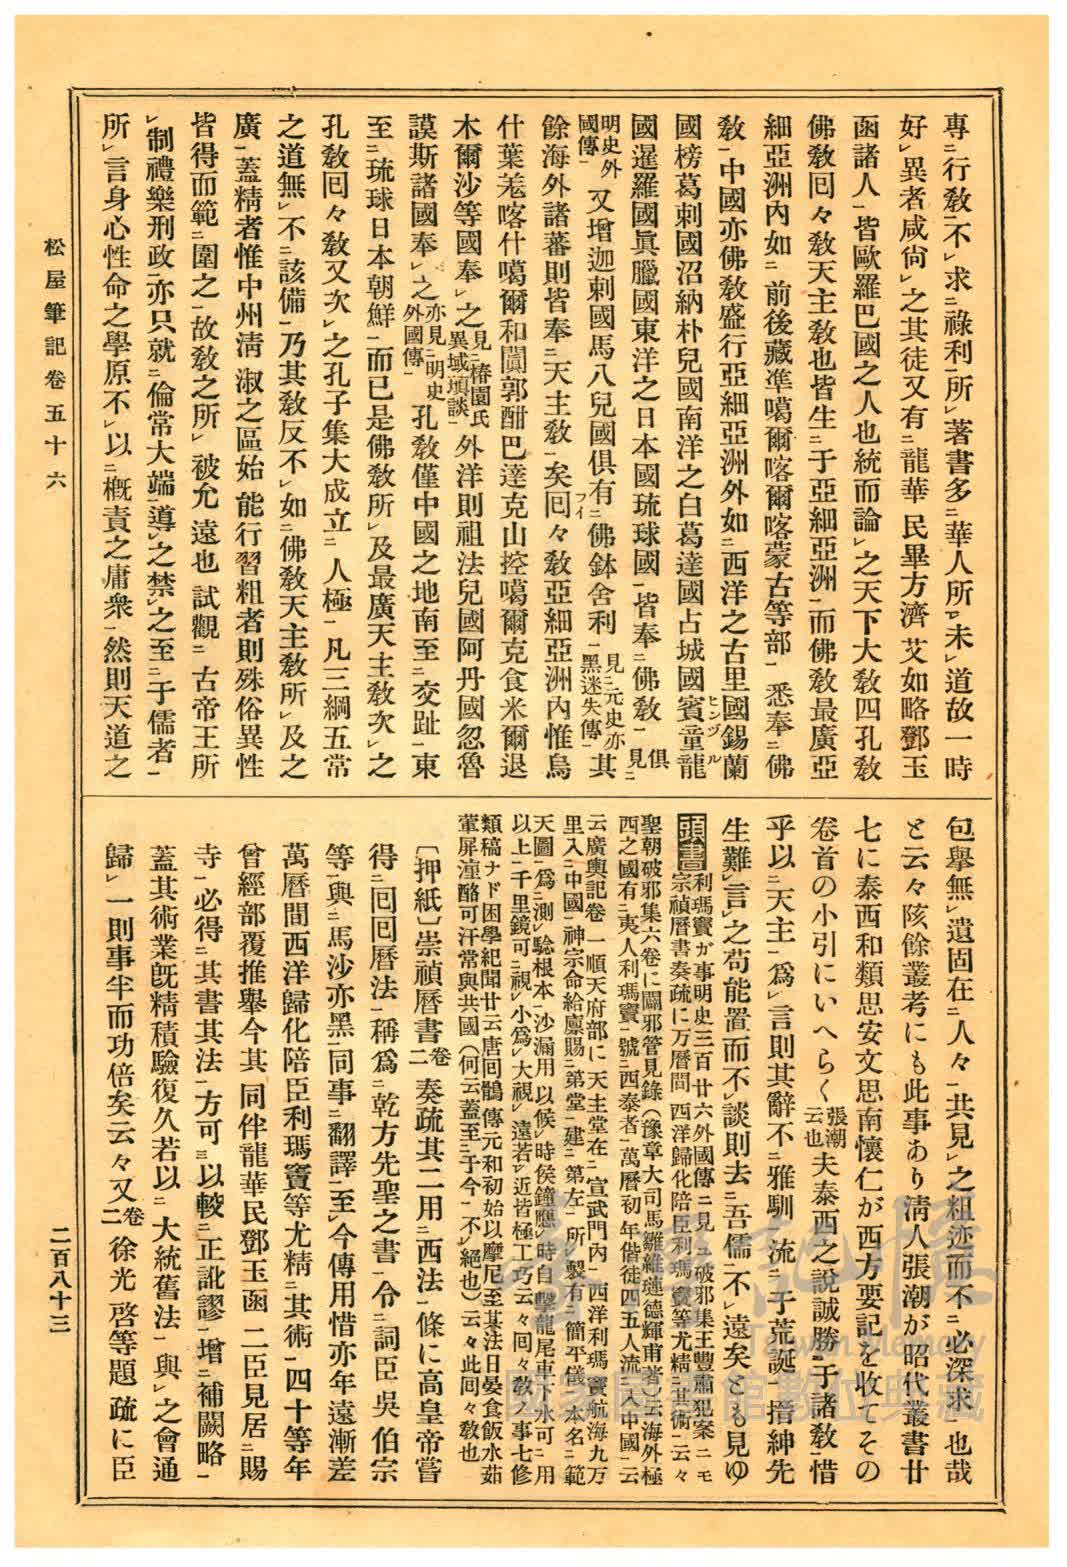 專ニ行敎不レ求ニ祿利一所レ著書多ニ華人所レ未レ道故一時
好レ異者咸尙レ之其徒又有ニ龍華民畢方濟艾如略鄧玉
函諸人一皆歐羅巴國之人也統而論レ之天下大敎四孔敎
佛敎囘々敎天主敎也皆生ニ于亞細亞洲一而佛敎最廣亞
細亞洲內如ニ前後藏準噶爾喀爾喀蒙古等部一悉奉ニ佛
敎一中國亦佛敎盛行亞細亞洲外如ニ西洋之古里國錫蘭
國榜葛剌國沼納朴兒國南洋之白葛達國占城國賓童龍
國暹羅國眞臘國東洋之日本國琉球國一皆奉ニ佛敎一俱見ニ
明史外國傳一又增迦剌國馬八兒國俱有ニ佛鉢舍利一見ニ元史亦黑迷失傳一其
餘海外諸蕃則皆奉ニ天主敎一矣囘々敎亞細亞洲內惟烏
什葉羌喀什噶爾和闐郭酣巴達克山控噶爾克食米爾退
木爾沙等國奉レ之見ニ椿園氏異域瑣談一外洋則祖法兒國阿丹國忽魯
謨斯諸國奉レ之亦見ニ明史外國傳一孔敎僅中國之地南至ニ交趾一東
至ニ琉球日本朝鮮一而已是佛敎所レ及最廣天主敎次レ之
孔敎囘々敎又次レ之孔子集大成立ニ人極一凡三綱五常
之道無レ不ニ該備一乃其敎反不レ如ニ佛敎天主敎所レ及之
廣一蓋精者惟中州淸淑之區始能行習粗者則殊俗異性
皆得而範ニ圍之一故敎之所レ被尤遠也試觀ニ古帝王所
レ制禮樂刑政一亦只就ニ倫常大端一導レ之禁レ之至ニ于儒者一
所レ言身心性命之學原不レ以ニ槪責之庸衆一然則天道之
包擧無レ遺固在ニ人々一共見レ之粗迹而不ニ必深求一也哉
と云々陔餘叢考にも此事あり淸人張潮が昭代叢書廿
七に泰西和類思安文思南懷仁が西方要記を收てその
卷首の小引にいへらく張潮云也夫泰西之說誠勝ニ于諸敎一惜
乎以ニ天主一爲レ言則其辭不ニ雅馴一流ニ于荒誕一搢紳先
生難レ言レ之苟能置而不レ談則去ニ吾儒一不レ遠矣とも見ゆ
頭書利瑪竇ガ事明史三百廿六外國傳ニ見ユ破邪集王豐肅犯案ニモ
宗禎曆書奏疏に万曆間西洋歸化陪臣利瑪竇等尤精ニ其術一云々
聖朝破邪集六卷に闢邪管見錄（豫章大司馬雛維蓮德輝甫著）云海外極
西之國有ニ夷人利瑪竇一號ニ西泰者一萬曆初年偕徒四五人流ニ入中國一云
云廣輿記卷一順天府部に天主堂在ニ宣武門內一西洋利瑪竇航海九万
里入ニ中國一神宗命給廩賜ニ第堂一建ニ第左一所レ製有ニ簡平儀一本名ニ範
天圖一爲ニ測レ驗根本一沙漏用以候レ時侯鐘應レ時自擊龍尾車下水可ニ用
以上一千里鏡可ニ視レ小爲レ大視レ遠若レ近皆極工巧云々囘々敎ノ事七修
類稿ナド困學紀聞廿云唐囘鶻傳元和初始以摩尼至其法日晏食飯水茹
葷屏湩酪可汗常與共國（何云蓋至ニ于今一不レ絕也）云々此囘々敎也
〔押紙〕崇禎曆書卷二奏疏其二用ニ西法一條に高皇帝嘗
得ニ囘囘曆法一稱爲ニ乾方先聖之書一令ニ詞臣吳伯宗
等一與ニ馬沙亦黑一同事ニ翻譯一至レ今傳用惜亦年遠漸差
萬曆間西洋歸化陪臣利瑪竇等尤精ニ其術一四十等年
曾經部覆推擧今其同伴龍華民鄧玉函二臣見居ニ賜
寺一必得ニ其書其法一方可ミ以較ニ正訛謬一增ニ補闕略一
蓋其術業旣精積驗復久若以ニ大統舊法一與レ之會通
歸レ一則事半而功倍矣云々又卷二徐光啓等題疏に臣
松屋筆記卷五十六
二百八十三
臺灣記憶
Taiwan Memory
國家圖書館數位典藏